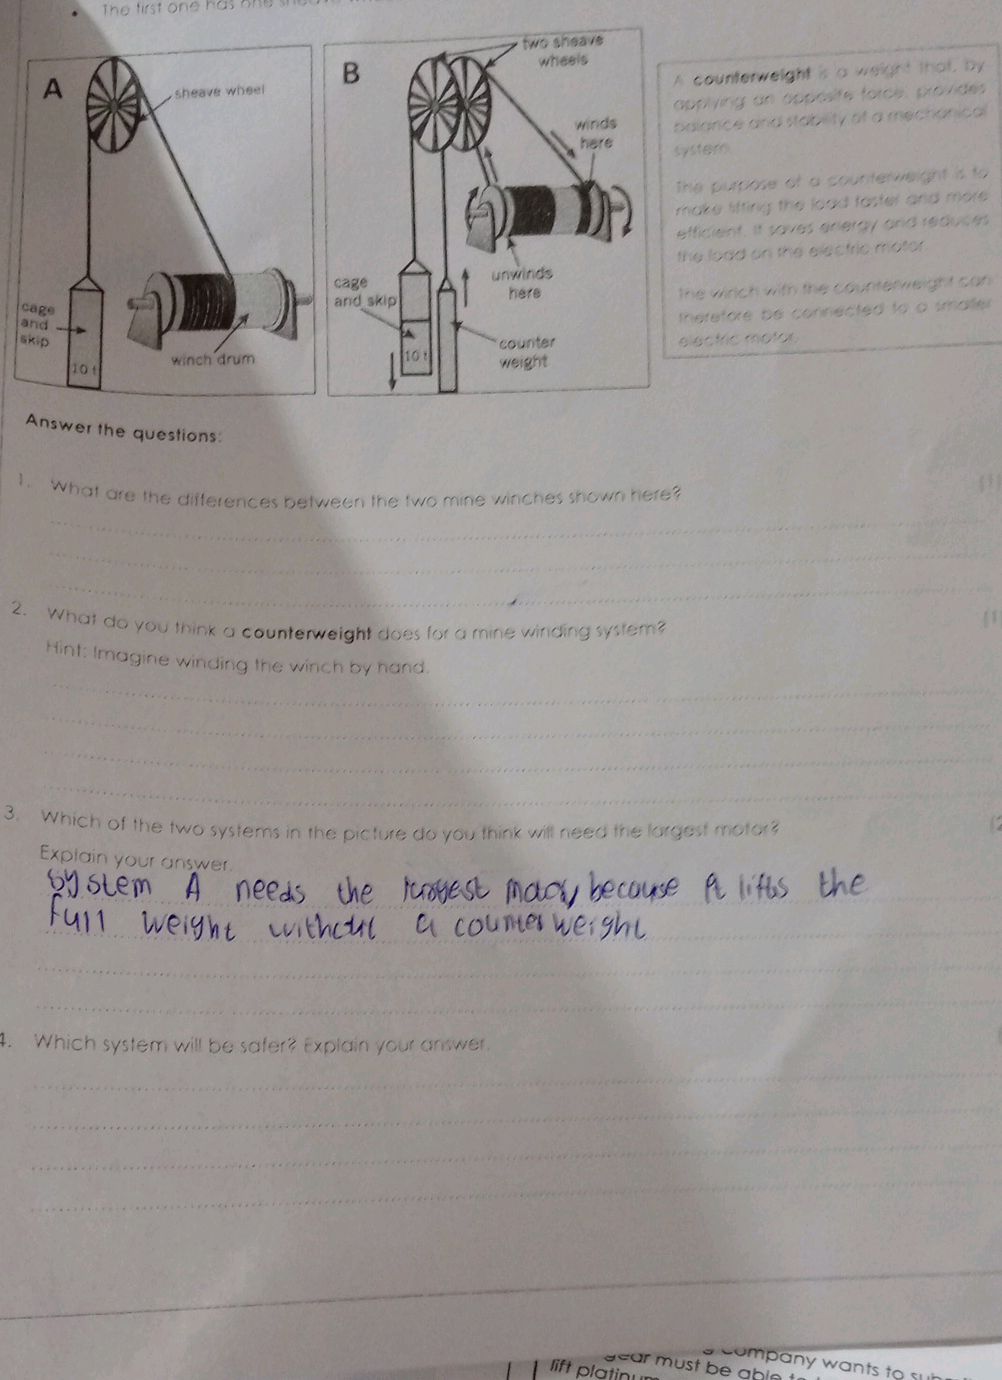 The first one has one
A
sheave wheel
cage
and
skip
10 t
winch drum
B
two sheave
wheels
winds
here
cage
and skip
unwinds
here
10 t
counter
weight
A counterweight is a weight that, by
applying an opposite force, provides
balance and stability of a mechanical
system.
The purpose of a counterweight is to
make lifting the load faster and more
efficient. It saves energy and reduces
the load on the electric motor.
The winch with the counterweight can
therefore be connected to a smaller
electric motor.
Answer the questions:
1. What are the differences between the two mine winches shown here?
2. What do you think a counterweight does for a mine winding system?
Hint: Imagine winding the winch by hand.
3. Which of the two systems in the picture do you think will need the largest motor?
Explain your answer.
System A needs the because it lifts the
full weight without a counterweight
4. Which system will be safer? Explain your answer.
company wants to
gear must be able
lift